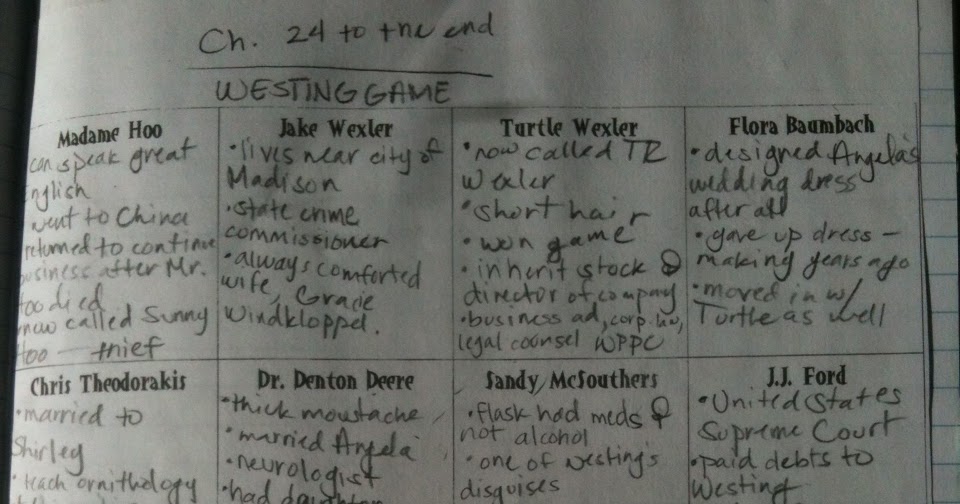 Ch. 24 to the end
WESTING GAME
Madame Hoo
can speak great
English
went to China
returned to continue
business after Mr.
Hoo died
now called Sunny
Hoo — thief
Jake Wexler
• lives near city of
Madison
• state crime
commissioner
• always comforted
wife, Gracie
Windkloppel.
Turtle Wexler
• now called TR
Wexler
• short hair
• won game
• inherit stock &
director of company
• business ad, corp. law,
legal counsel WPPC
Flora Baumbach
• designed Angela's
wedding dress
after all
• gave up dress —
making years ago
• moved in w/
Turtle as well
Chris Theodorakis
• married to
Shirley
• teach ornithology
Dr. Denton Deere
• thick moustache
• married Angela
• neurologist
• had daughter
Sandy McSouthers
• flask had meds &
not alcohol
• one of Westing's
disguises
J.J. Ford
• United States
Supreme Court
• paid debts to
Westing